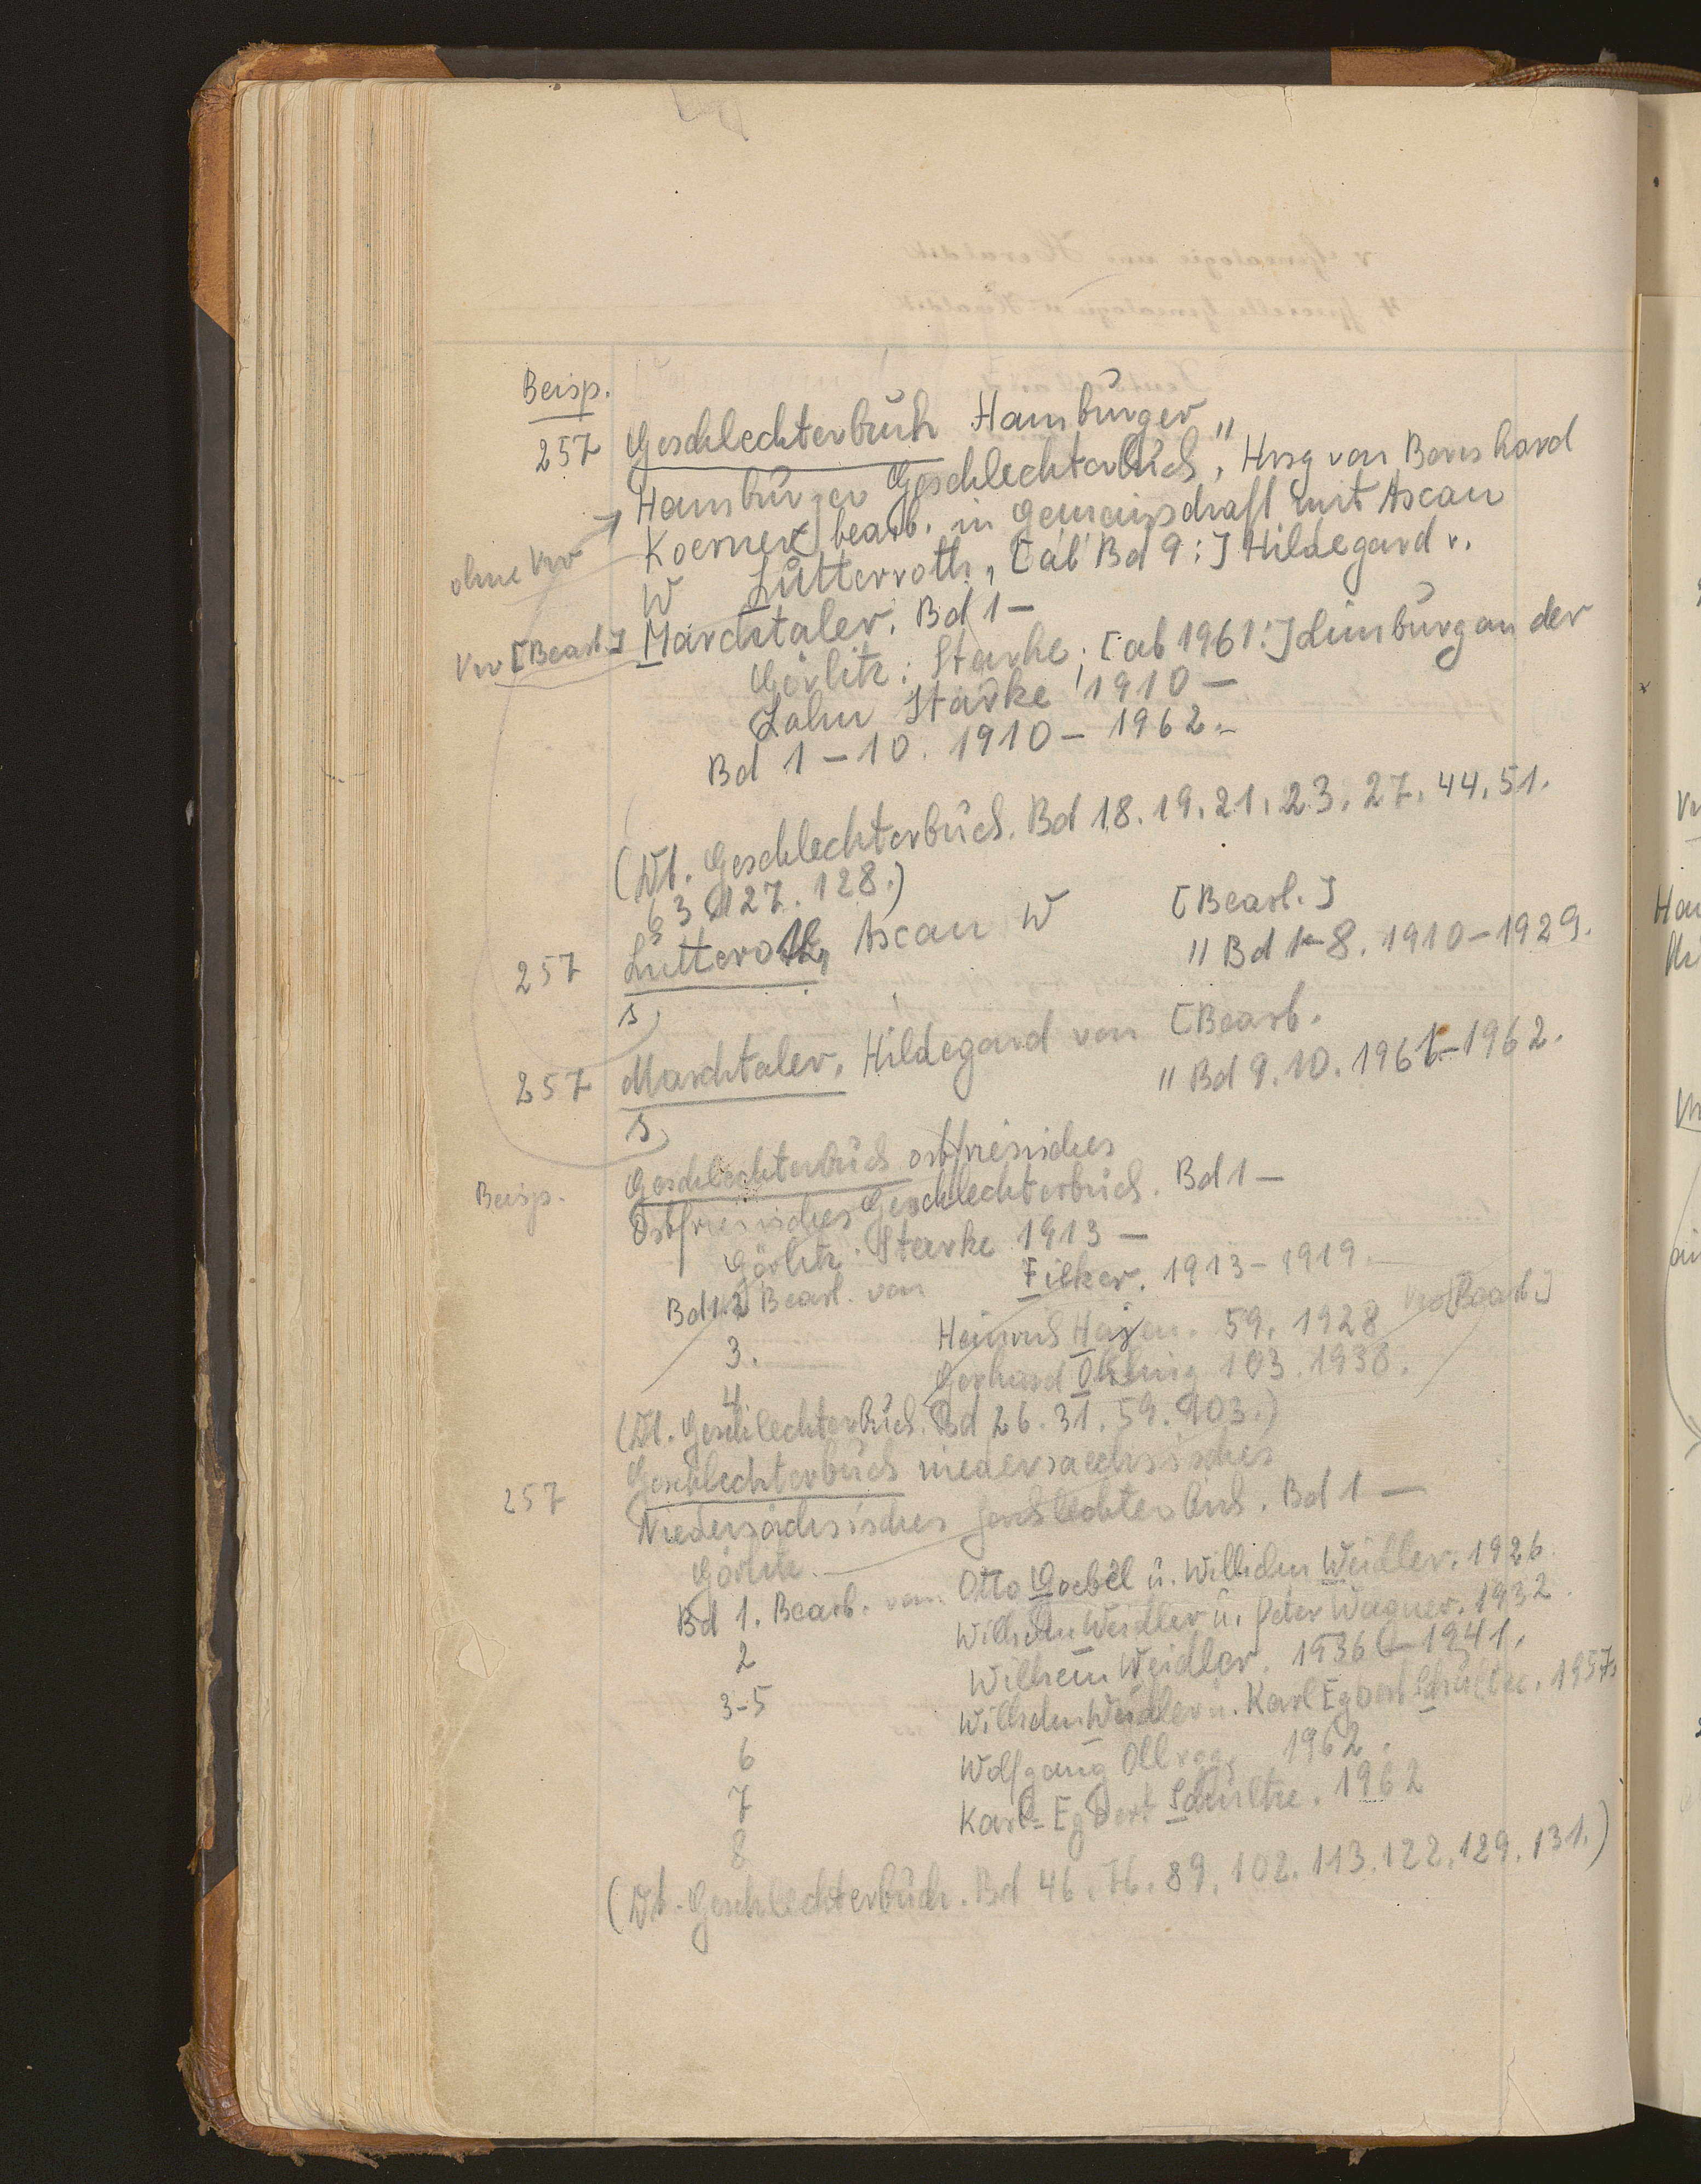 Beisp.
257 Geschlechterbuch Hamburger
Hamburger Geschlechterbuch, Hrsg von Bernhard
ohne Vw Koerner bearb. in Gemeinschaft mit Ascan
W Lutterroth, [ab Bd 9:] Hildegard v.
Vw [Bearb.] Marchtaler. Bd 1 –
Görlitz: Starke; [ab 1961:] Limburg an der
Lahn Starke 1910 –
Bd 1 – 10. 1910 – 1962. –
(Dt. Geschlechterbuch. Bd 18. 19. 21. 23. 27. 44. 51.
63. 127. 128.)
257 Lutteroth, Ascan W [Bearb.]
s " Bd 1–8. 1910–1929.
257 Marchtaler, Hildegard von [Bearb.
s " Bd 9. 10. 1961–1962.
Geschlechterbuch ostfriesisches
Beisp. Ostfriesisches Geschlechterbuch. Bd 1 –
Görlitz Starke 1913 –
Bd 1.2 Bearb. von Fieker. 1913 – 1919. –
3. Heinrich Hayen. 59. 1928 Vw [Bearb.]
4 Gerhard Ohling 103. 1938.
(Dt. Geschlechterbuch. Bd 26. 31. 59. 103.)
257 Geschlechterbuch niedersaechsisches
Niedersächsisches Geschlechterbuch. Bd 1 –
Görlitz. –
Bd 1. Bearb. von Otto Goebel u. Wilhelm Weidler. 1926
2 Wilhelm Weidler u. Peter Wagner. 1932.
3–5 Wilhelm Weidler. 1936 – 1941.
6 Wilhelm Weidler u. Karl Egbert Schultze. 1957.
7 Wolfgang Ollrog, 1962.
8 Karl-Egbert Schultze. 1962
(Dt. Geschlechterbuch. Bd 46. 76. 89. 102. 113. 122. 129. 131.)